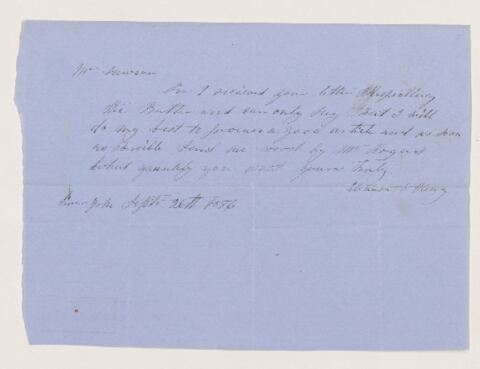 Mr
Sir I recieved your letter Respectting
the Butter and can only say that I will
do my best to procure a good article and as soon
as possible Send me word by Mr Rogers
what quantity you want yours truly
New York Sept 26th 1856